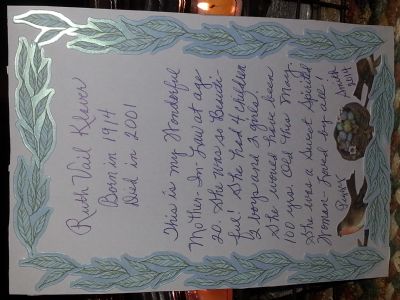 Ruth Vail Klever
Born in 1914
Died in 2001
This is my Wonderful
Mother-In Law at age
20. She was so Beauti-
ful! She had 4 children
2 boys and 2 girls.
She would have been
100 yrs. Old this May.
She was a Sweet Spirited
Woman Loved by all!
Smith
2014